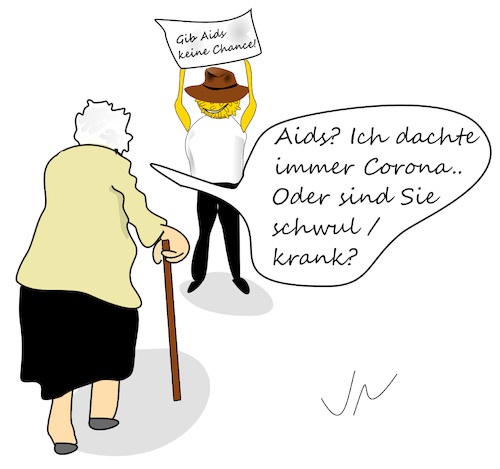 Gib Aids
keine Chance!
Aids? Ich dachte
immer Corona..
Oder sind Sie
schwul /
krank?
JN